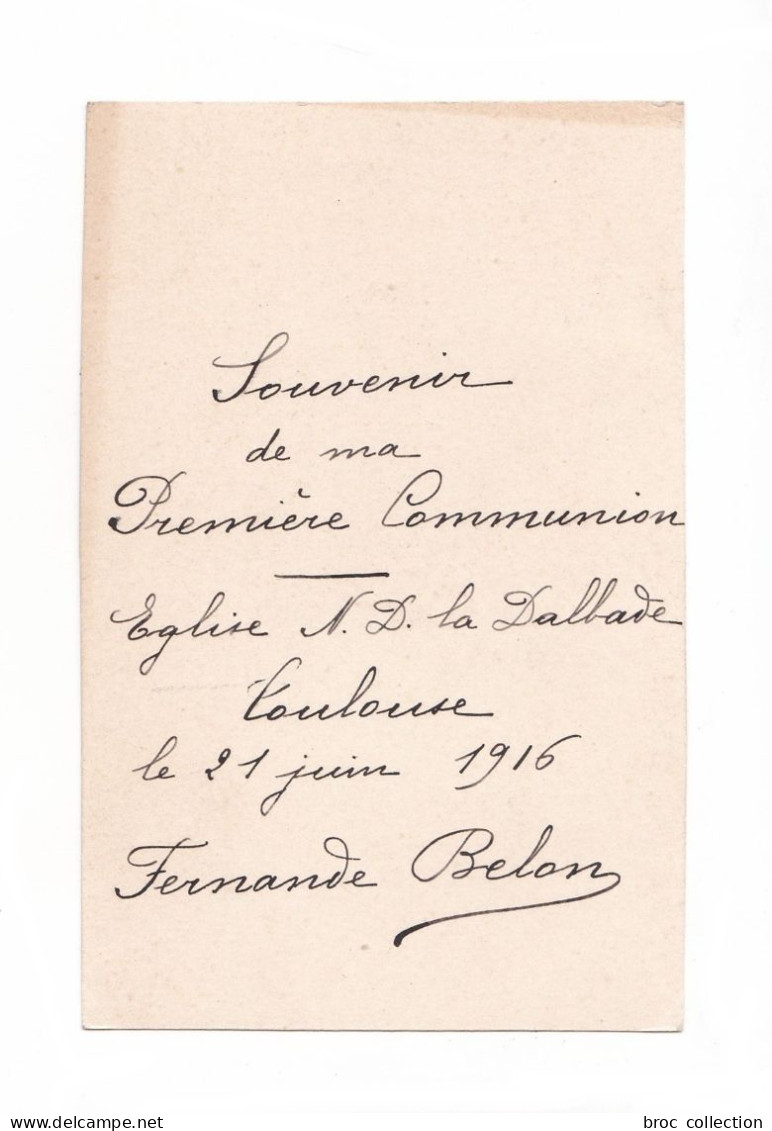 Souvenir
de ma
Première Communion
Eglise N. D. la Dalbade
Toulouse
le 21 juin 1916
Fernande Belon
www.delcampe.net
broc collection